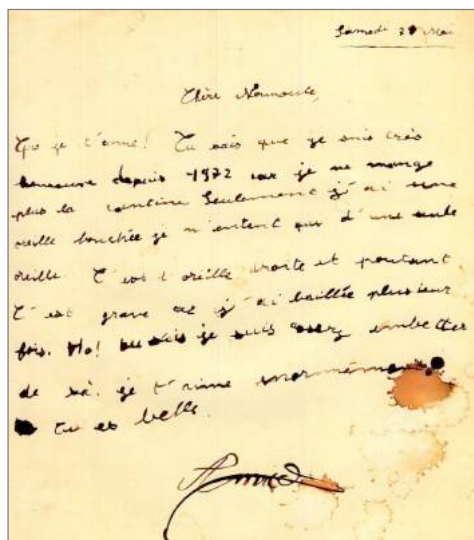 Samedi
Chère
je t'aime! Tu sais que je suis très
heureuse depuis 1972 car je ne mange
plus la cantine Seulement j'ai une
oreille bouchée je n'entent que d'une seule
oreille. C'est l'oreille droite et pourtant
C'est grave j'ai baillée plusieur
fois. Ho! tu sais je suis assez embetter
de sà. je t'aime enormément
tu es belle.